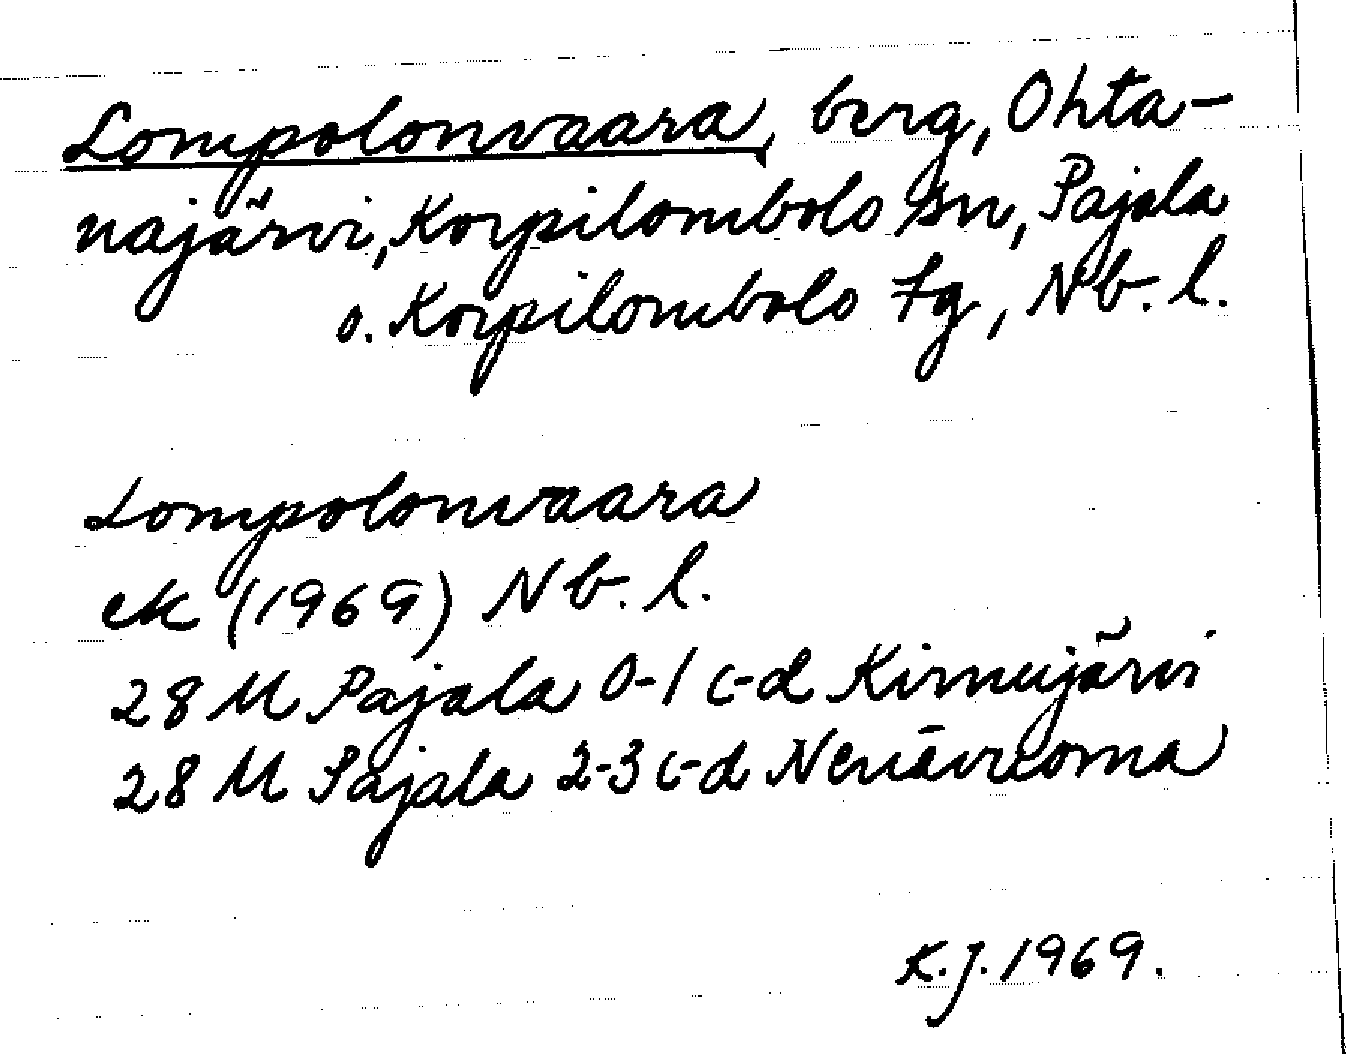 Lompolonvaara, berg, Ohta-
najärvi, Korpilombolo sn, Pajala
o. Korpilombolo tg, Nb. l.
Lompolonvaara
ek (1969) Nb. l.
28 M Pajala 0-1 c-d Kirnujärvi
28 M Pajala 2-3 c-d Nenävuoma
K.J. 1969.